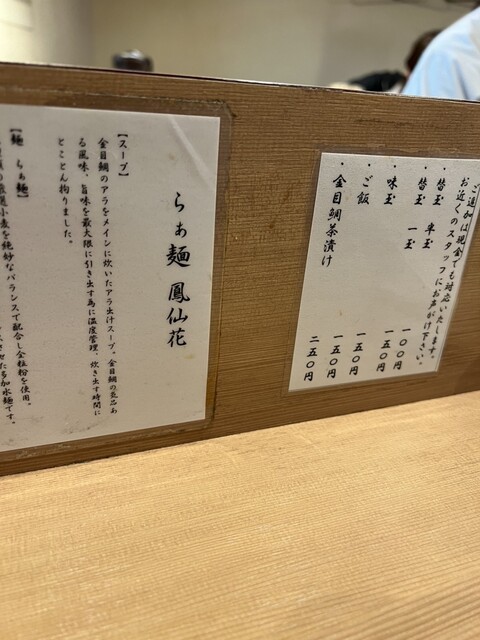 ご追加は現金でも対応いたします。
お近くのスタッフにお声がけ下さい。
・替玉 半玉 一〇〇円
・替玉 一玉 一五〇円
・味玉 一五〇円
・ご飯 一五〇円
・金目鯛茶漬け 二五〇円
らぁ麺 鳳仙花
【スープ】
金目鯛のアラをメインに炊いたアラ出汁スープ。金目鯛の気品あ
る風味、旨味を最大限に引き出す為に温度管理、炊き出す時間に
とことん拘りました。
【麺 らぁ麺】
厳選小麦を絶妙なバランスで配合し全粒粉を使用。
させた多加水麺です。